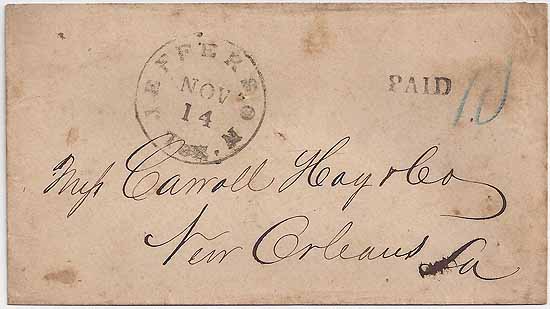 JEFFERSON TEX.
NOV
14
PAID
10
Mess Carroll Hoy & Co
New Orleans La